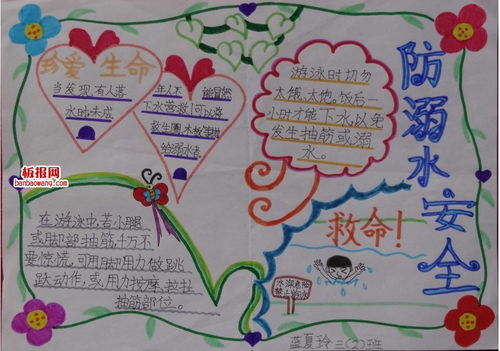 防溺水安全
珍爱生命
当发现有人落
水时未成
年人不能冒然
下水营救可以将
救生圈、木板等抛
给溺水者。
游泳时切勿
太饿、太饱。饭后一
小时才能下水,以免
发生抽筋或溺
水。
板报网
banbaowang.com
在游泳中,若小腿
或脚部抽筋,千万不
要惊慌,可用脚用力做跳
跃动作,或用力按摩、拉扯
抽筋部位。
救命!
水深危险
禁止游泳
蓝夏玲 三(2)班